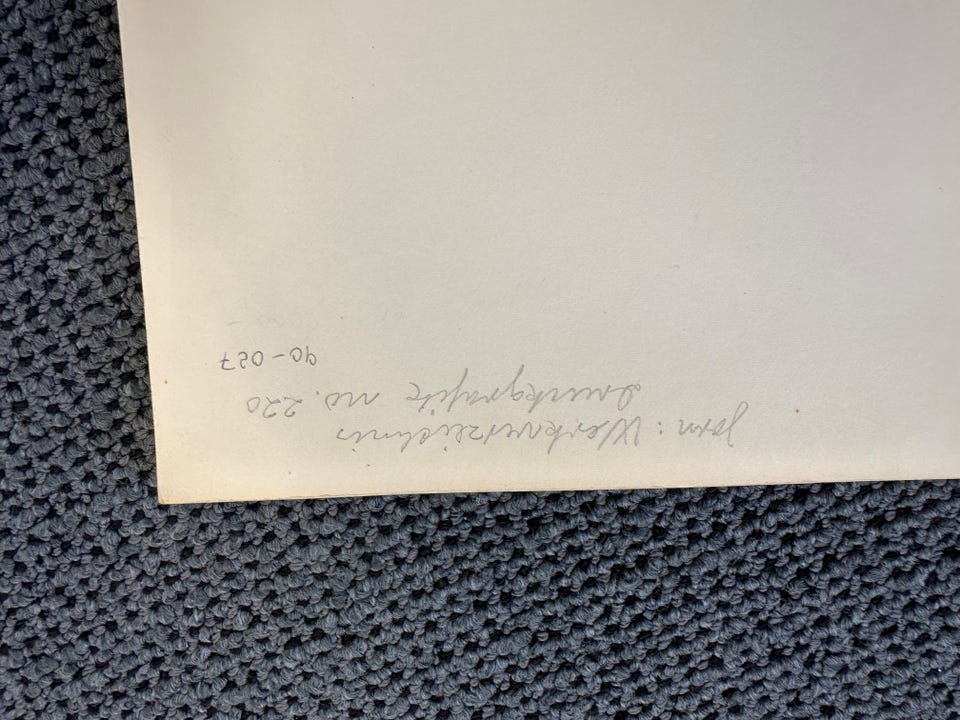 Jorn: Werkverzeichnis
Druckgrafik no. 220
90-027